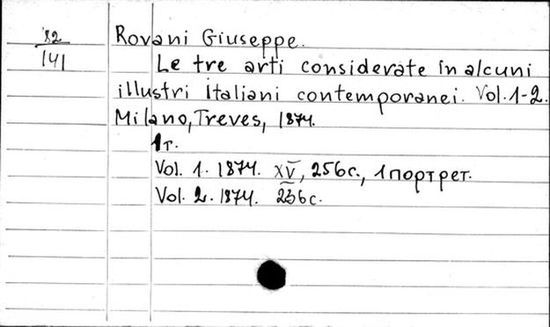 82
141
Rovani Giuseppe.
Le tre arti considerate in alcuni
illustri italiani contemporanei. Vol. 1-2.
Milano, Treves, 1874.
1т.
Vol. 1. 1874. XV, 256с., 1 портрет.
Vol. 2. 1874. 236с.